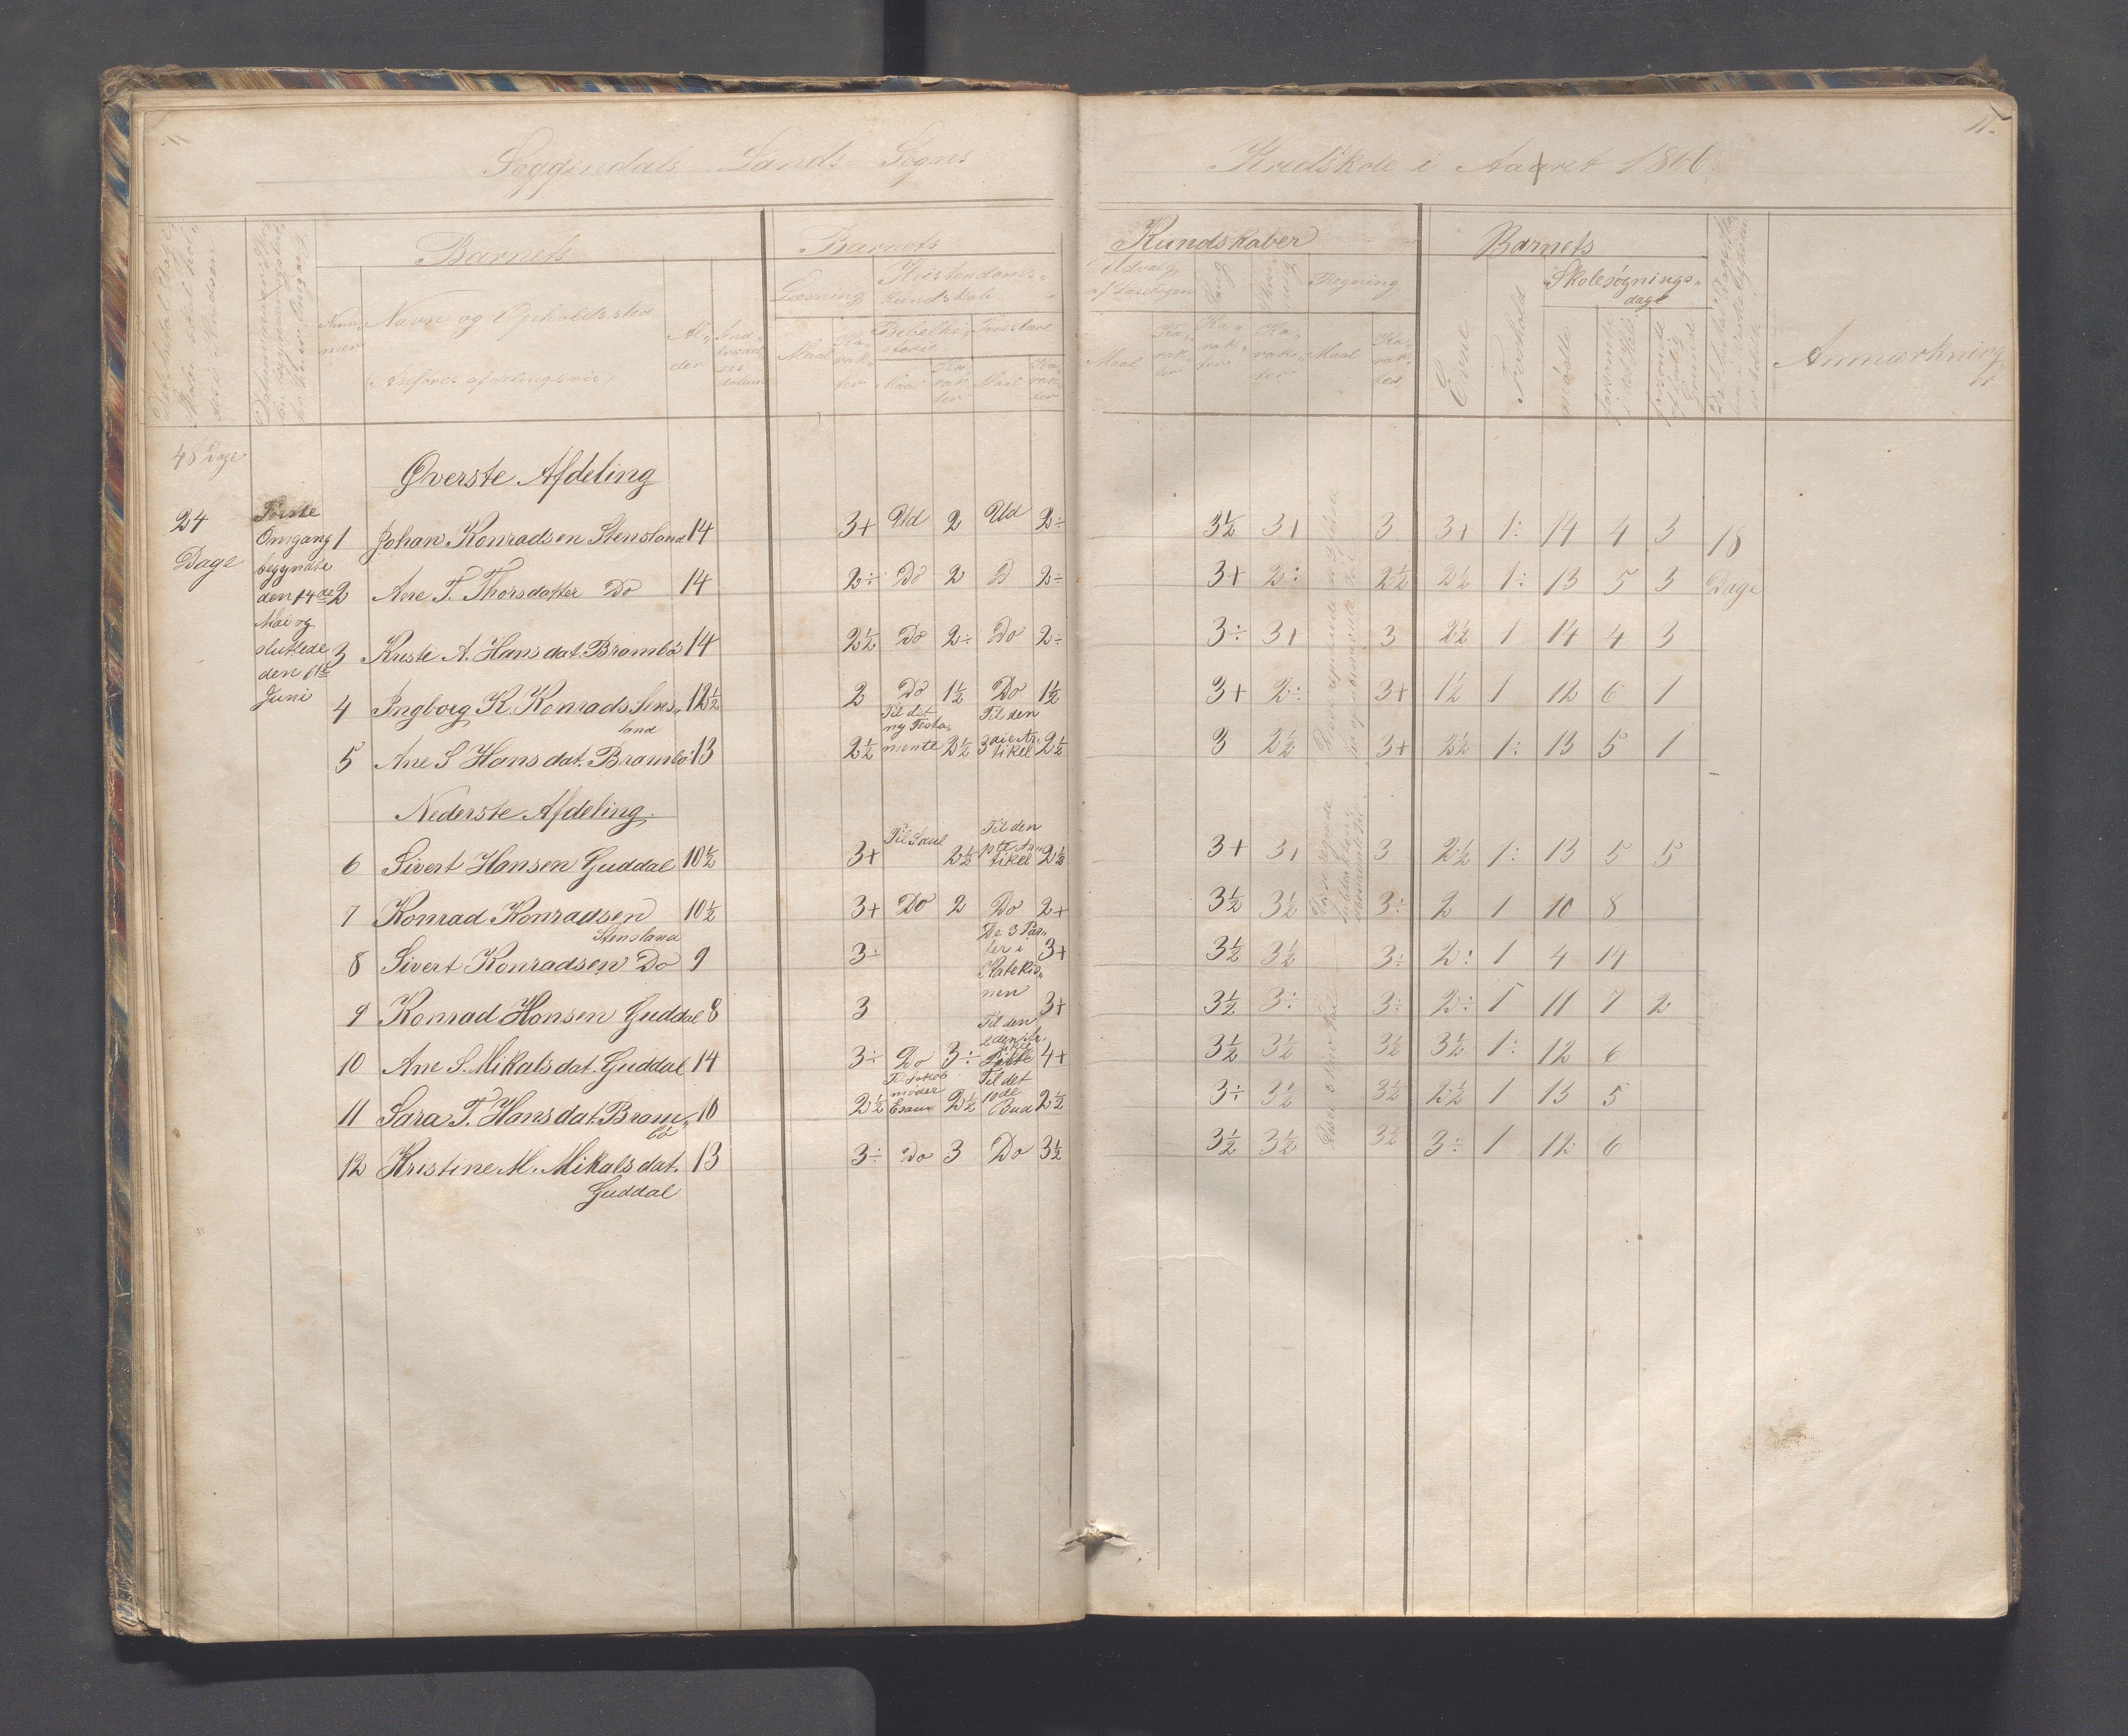 Soggendals Lands-Sogns
Kredskole i Aaret 1866
11.
Barnets
Nummer
Navn og Opholdssted
(Anføres afdelingsvis)
Alder
Barnets
Læsning
Kristendoms-
kundskab
Maal
Karakter
Bibelhistorie
Troeslære
Maal
Karakter
Maal
Karakter
Kundskaber
Udvalg
af Læsebogen
Sang
Skrivning
Regning
Maal
Karakter
Karakter
Karakter
Maal
Karakter
Barnets
Evne
Forhold
Skolesøgnings-
dage
mødte
forsømte
Anmærkninger
48 Dage
Øverste Afdeling
24
Dage
Første
Omgang
begyndte
den 14de
Mai og
sluttede
den 6te
Juni
1 Johan Konradsen Stensland 14 3+ Ud 2 Ud 2÷ 3½ 3+ 3 3+ 1÷ 14 4 3 18
2 Ane T. Thorsdatter Do 14 2÷ Do 2 D 2÷ 3+ 2÷ 2½ 2½ 1÷ 13 5 3 Dage
3 A. Hansdat. Brambø 14 2½ Do 2÷ Do 2÷ 3÷ 3+ 3 2½ 1 14 4 3
4 Ingborg K. Konrads Stens-
land 12½ 2 Do 1½ Do 1½ 3+ 2÷ 3+ 1½ 1 12 6 1
5 Ane S Hansdat. Brambø 13 2½ Til det
ny Testa-
mente 2½ Til den
3die Ar-
tikel 2½ 3 2½ 3+ 2½ 1÷ 13 5 1
Nederste Afdeling.
6 Sivert Hansen Guddal 10½ 3+ Til Saul 2½ Til den
1ste Ar-
tikel 2½ 3+ 3+ 3 2½ 1÷ 13 5 5
7 Konrad Konradsen
Stensland 10½ 3+ Do 2 Do 2+ 3½ 3½ 3÷ 2 1 10 8
8 Sivert Konradsen Do 9 3÷ De 3 Par-
ter i
Katekis-
men 3+ 3½ 3½ 3÷ 2÷ 1 4 14
9 Konrad Hansen Guddal 8 3 3+ 3½ 3÷ 3÷ 2÷ 1 11 7 2
10 Ane S. Mikalsdat. Guddal 14 3÷ Do 3÷ Til den
2den Ar
4+ 3½ 3½ 3½ 3½ 1÷ 12 6
11 Sara T. Hansdat. Bram-
bø 10 2½ Til Jakob
møder
Esau 2½ Til det
10de
Bud 2½ 3÷ 3½ 3½ 2½ 1 13 5
12 Kristine M. Mikalsdat.
Guddal 13 3÷ Do 3 Do 3½ 3½ 3½ 3½ 3÷ 1 12 6